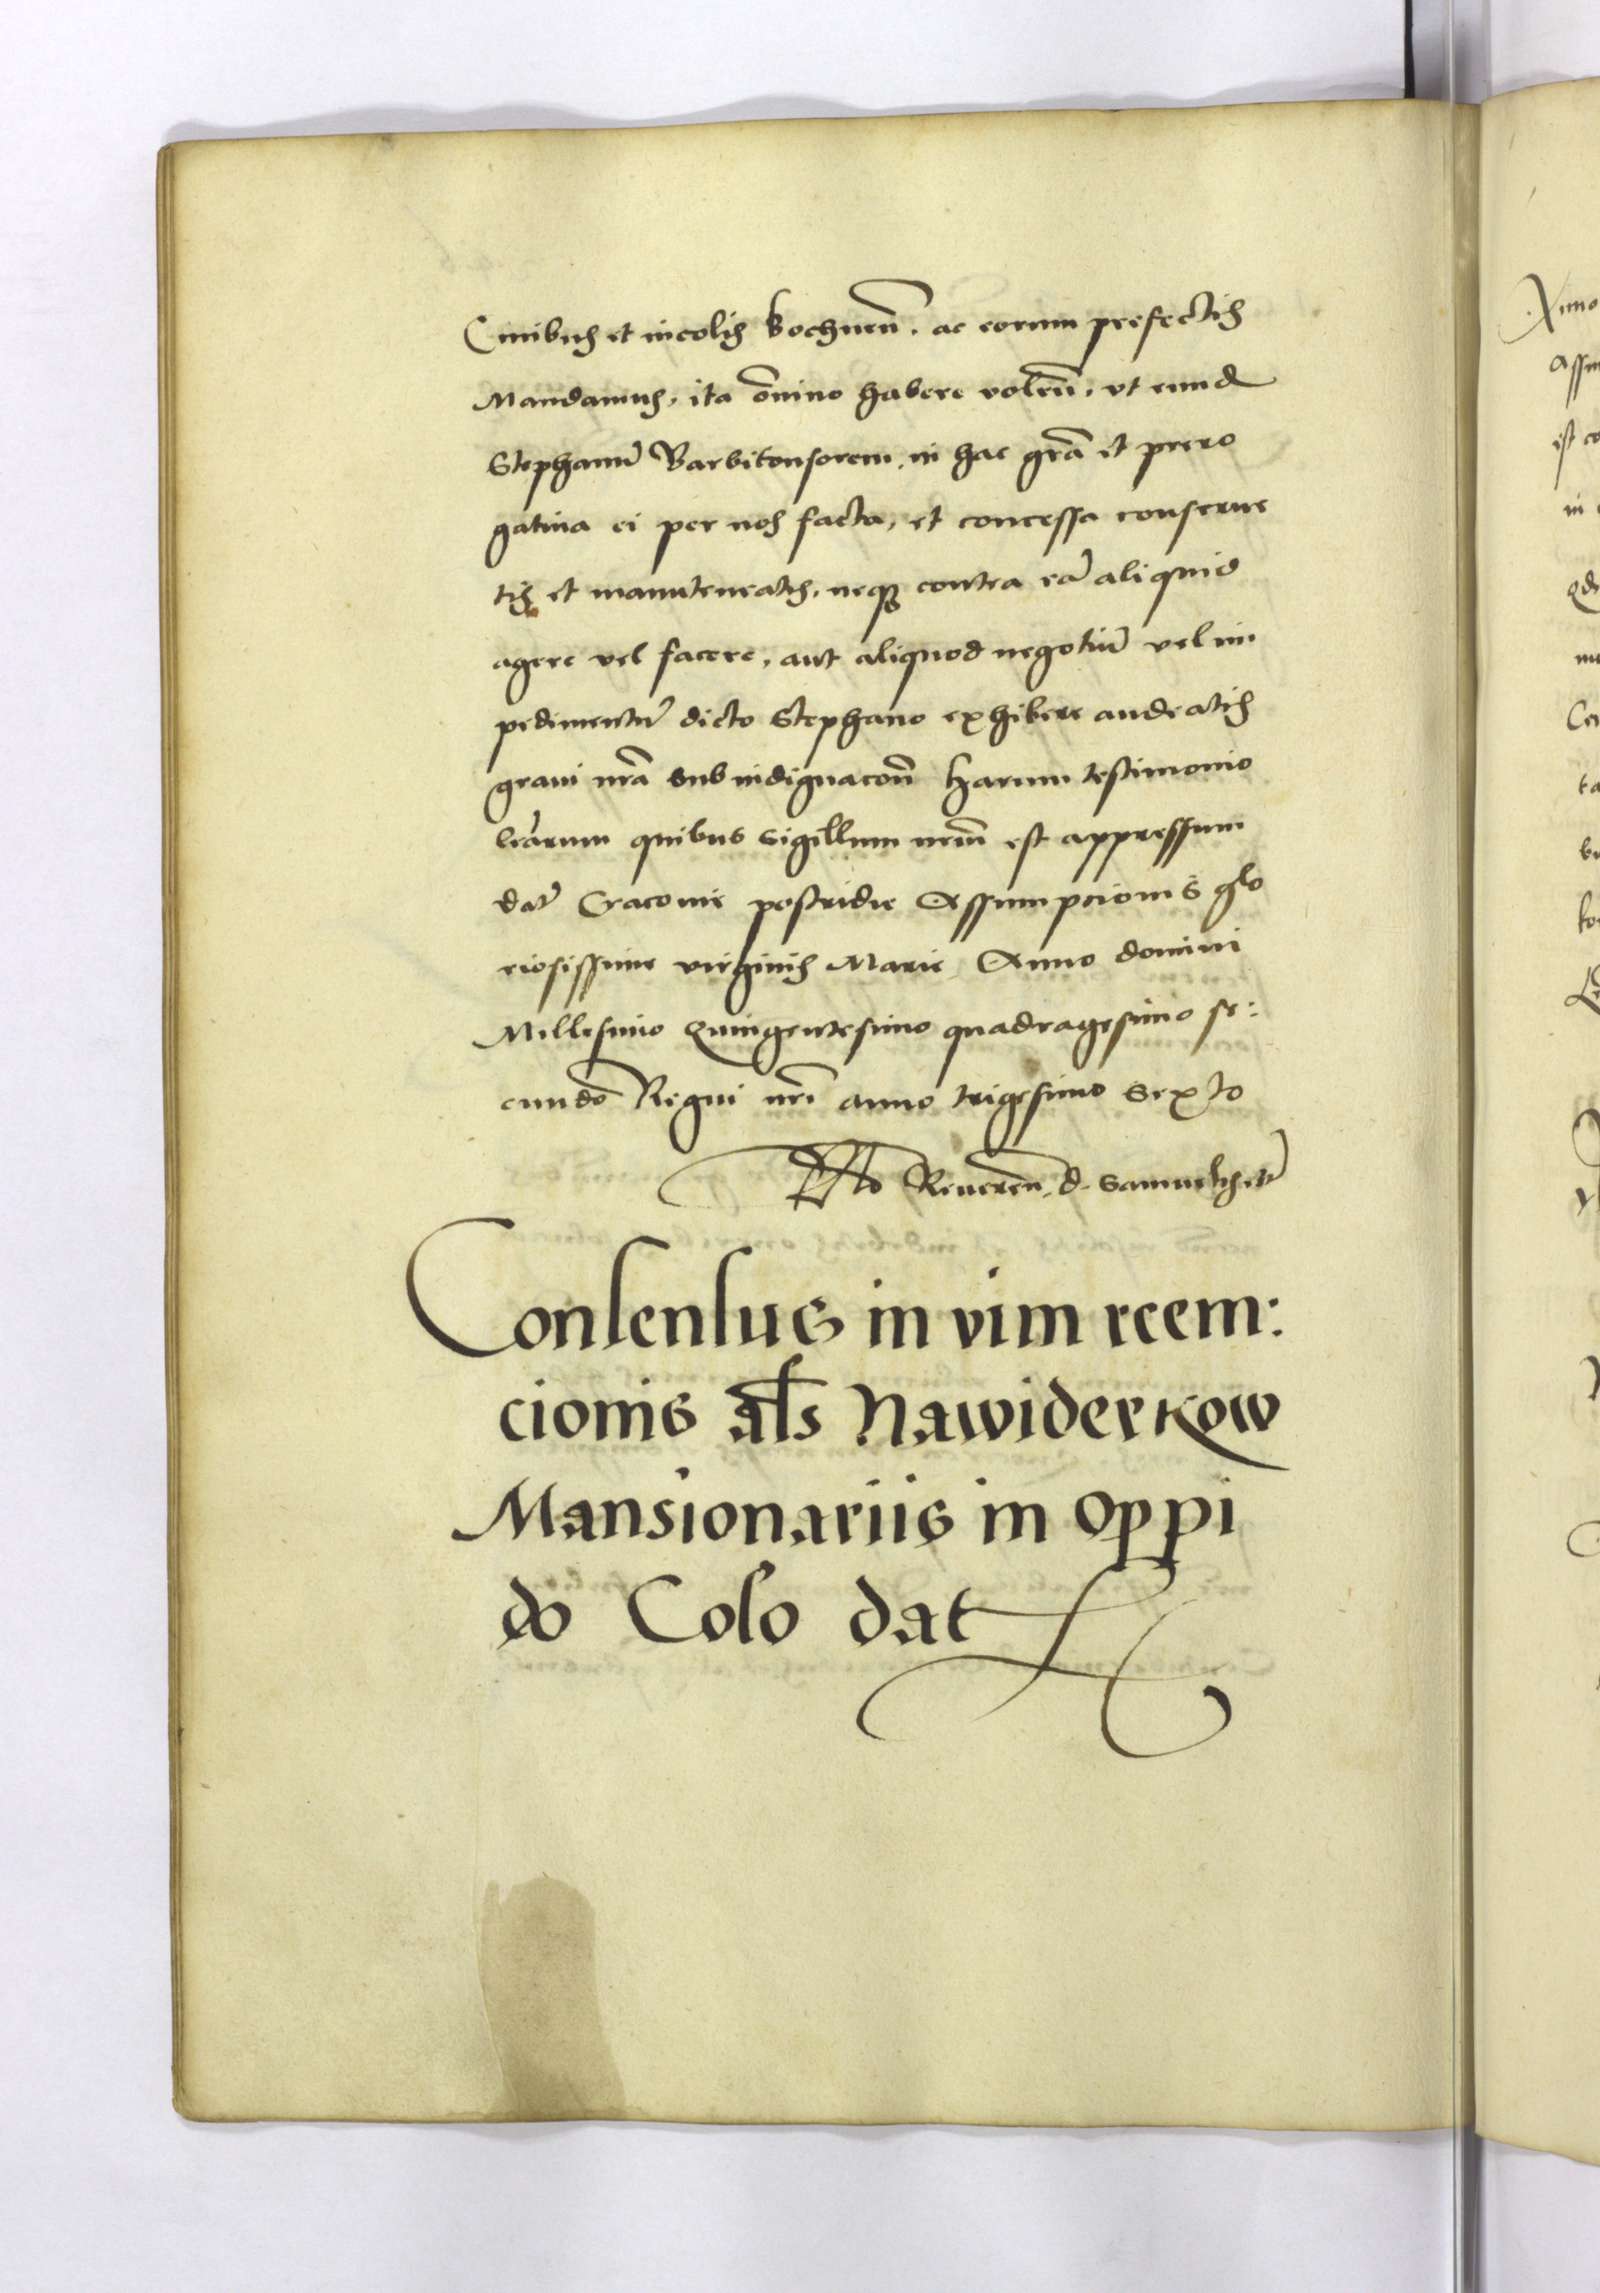 Ciuibus et incolis Bochnen̄. ac eorum prefectis
Mandamus, ita om̄ino habere volen̄, vt eund
Stephanū Barbitonsorem, in hac grā et prero
gatiua ei per nos facta, et concessa conserue
tis et manuteneatis, neqꝫ contra eā aliquid
agere vel facere, aut aliquod negotiū vel im
pedimentū dicto Stephano exhibere audeatis
graui nrā sub indignacōn̄ Harum testimonio
lrārum quibus sigillum nrm̄ est appressum
dat̄ Cracouie postridie Assumpcionis glo
riosissime virginis Marie, Anno domini
Millesimo Quingentesimo quadragesimo se:
cundo Regni nrī anno trigesimo sexto
Ad Reueren̄. d. Samuelis etc̄
Consensus in vim reem:
cionis als̄ Nawiderkow
Mansionariis in oppi
do Colo dat